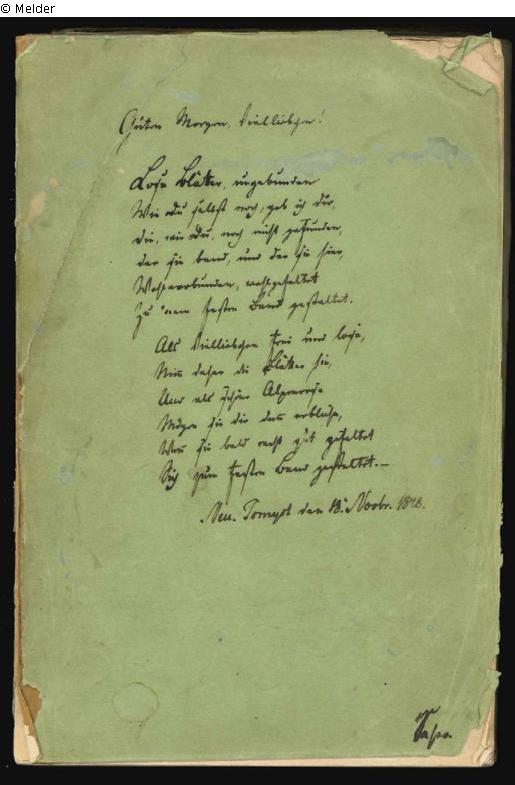 © Melder
Guten Morgen, Vielliebchen!
Lose Blätter, ungebunden
Wie Du selbst noch, geb ich Dir,
Die, wie Du, noch nicht gefunden,
Der sie band, und der sie hier,
Wohlverbunden, wohlgefaltet
Zu 'nem festen Band gestaltet.
Als Vielliebchen frei und lose,
Nimm daher die Blätter hin,
Und als schöne Alpenrose
Mögen sie dir dann erblühn,
Wenn sie bald recht gut gefaltet
Sich zum festen Band gestaltet.—
Neu-Tomysl den 18. Novbr. 18